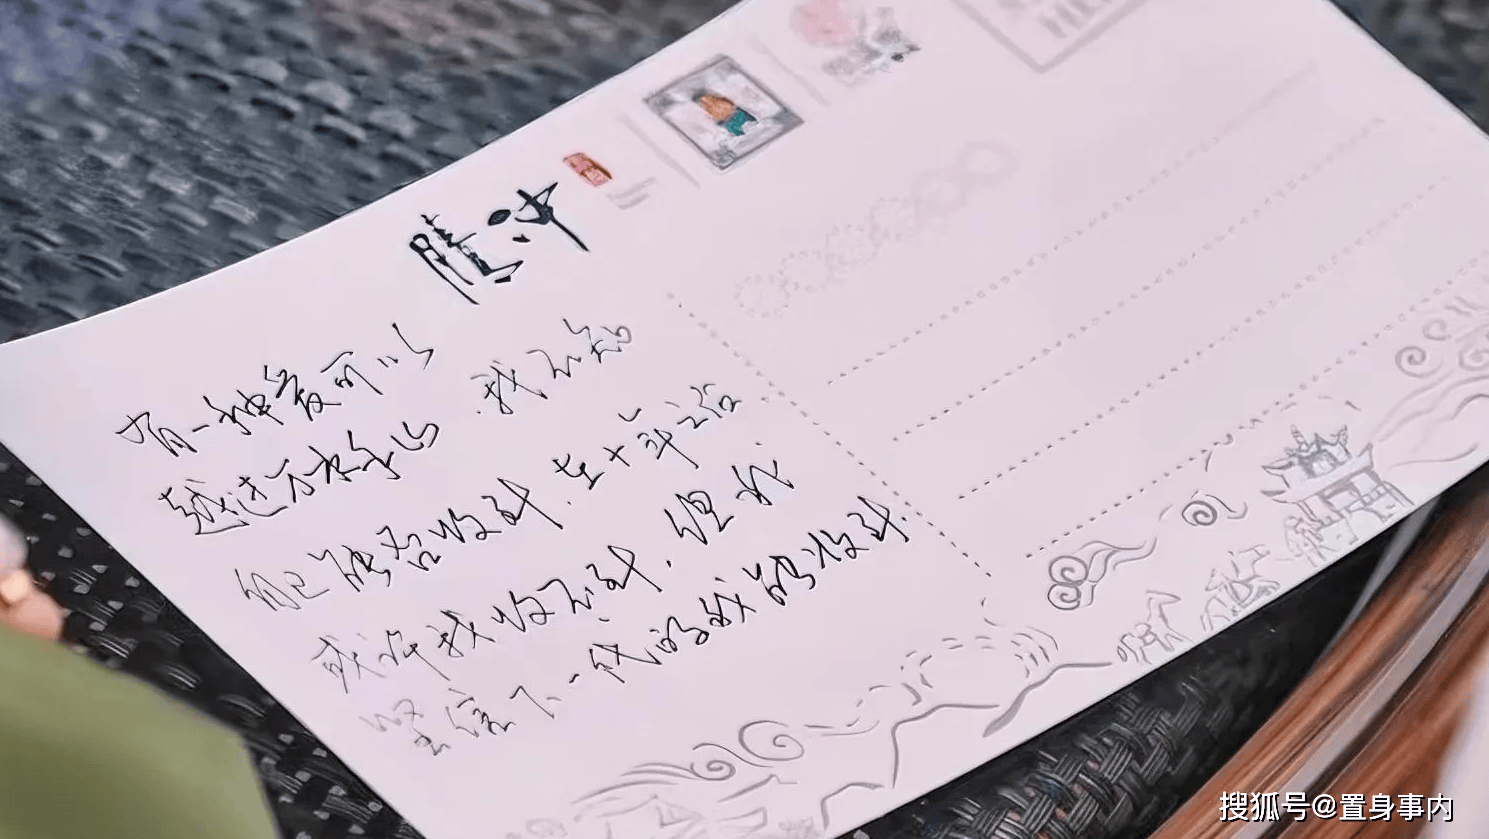 腾冲
有一种爱可以
越过万水千山.我不知
自己能否收到.在十年之后
或许我收不到,但我
坚信下一代的我能收到.
搜狐号@置身事内